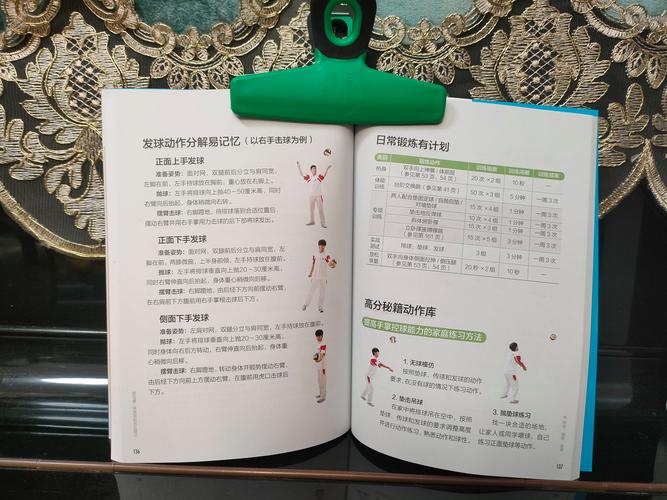 发球动作分解易记忆（以右手击球为例）
正面上手发球
准备姿势：面对网，双腿前后分立与肩同宽，
左脚在前，左手持球放在胸前，重心放在右脚上。
抛球：左手将球向上抛40～50厘米高，同时
右臂伸直向后抬起，身体稍微向右转。
摆臂击球：右脚蹬地，待排球落到合适位置后，
摆动右臂并用右手掌用力击球的后下部将球发出。
正面下手发球
准备姿势：面对网，双腿前后分立与肩同宽，左
脚在前，两膝微曲，上半身前倾，左手持球放在腹前。
抛球：左手将排球垂直向上抛20～30厘米高，同
时右臂伸直向后抬起，身体重心稍微后移。
摆臂击球：右脚蹬地，由后经下方向前摆动右臂，
在右肩前下方腹前用右手掌根击球后下部。
侧面下手发球
准备姿势：左肩对网，双腿分立与肩同宽，左手持球放在腹前。
抛球：左手将排球垂直向上抛20～30厘米高，
同时身体向右后方转动，右臂伸直向后抬起，身体重
心稍微向后移。
摆臂击球：右脚蹬地，转动身体并顺势摆动右臂，
由后经下方向前上方摆动右臂，在腹前用虎口击球后
下方。
136
日常锻炼有计划
类别 锻炼动作 训练次数 训练间歇 训练频率
热身 双手向上伸臂/体前屈（参见第53页、54页） 20次×2组 10秒 —
体能训练 台阶交换跳（参见第41页） 50次×3组 5分钟 一周3次
专项训练 两人配合垫固定球/自抛自垫/对墙垫球 15次×4组 1分钟 一周3次
垫击地反弹球 10次×4组 1分钟 一周3次
斜体俯卧撑 15次×4组 1分钟 一周3次
立卧撑接蹲摸跳（参见第161页） 15次×5组 3分钟 一周3次
实战测试 排球：垫球、发球 3组 3分钟 一周3次
放松恢复 双手向身体侧面拉伸/侧压腿（参见第53页、54页） 20秒×2组 10秒 —
高分秘籍动作库
提高手掌控球能力的家庭练习方法
1. 无球模仿
按照垫球、传球和发球的动作
要求，在没有球的情况下练习动作。
2. 垫击吊球
在家中将排球吊在空中，按照
垫球、传球和发球的要求调整高度
并进行动作练习，熟悉动作和球性。
3. 抛垫球练习
找一块合适的场地，
让家人或同学喂球，自己
练习正面垫球等动作。
137